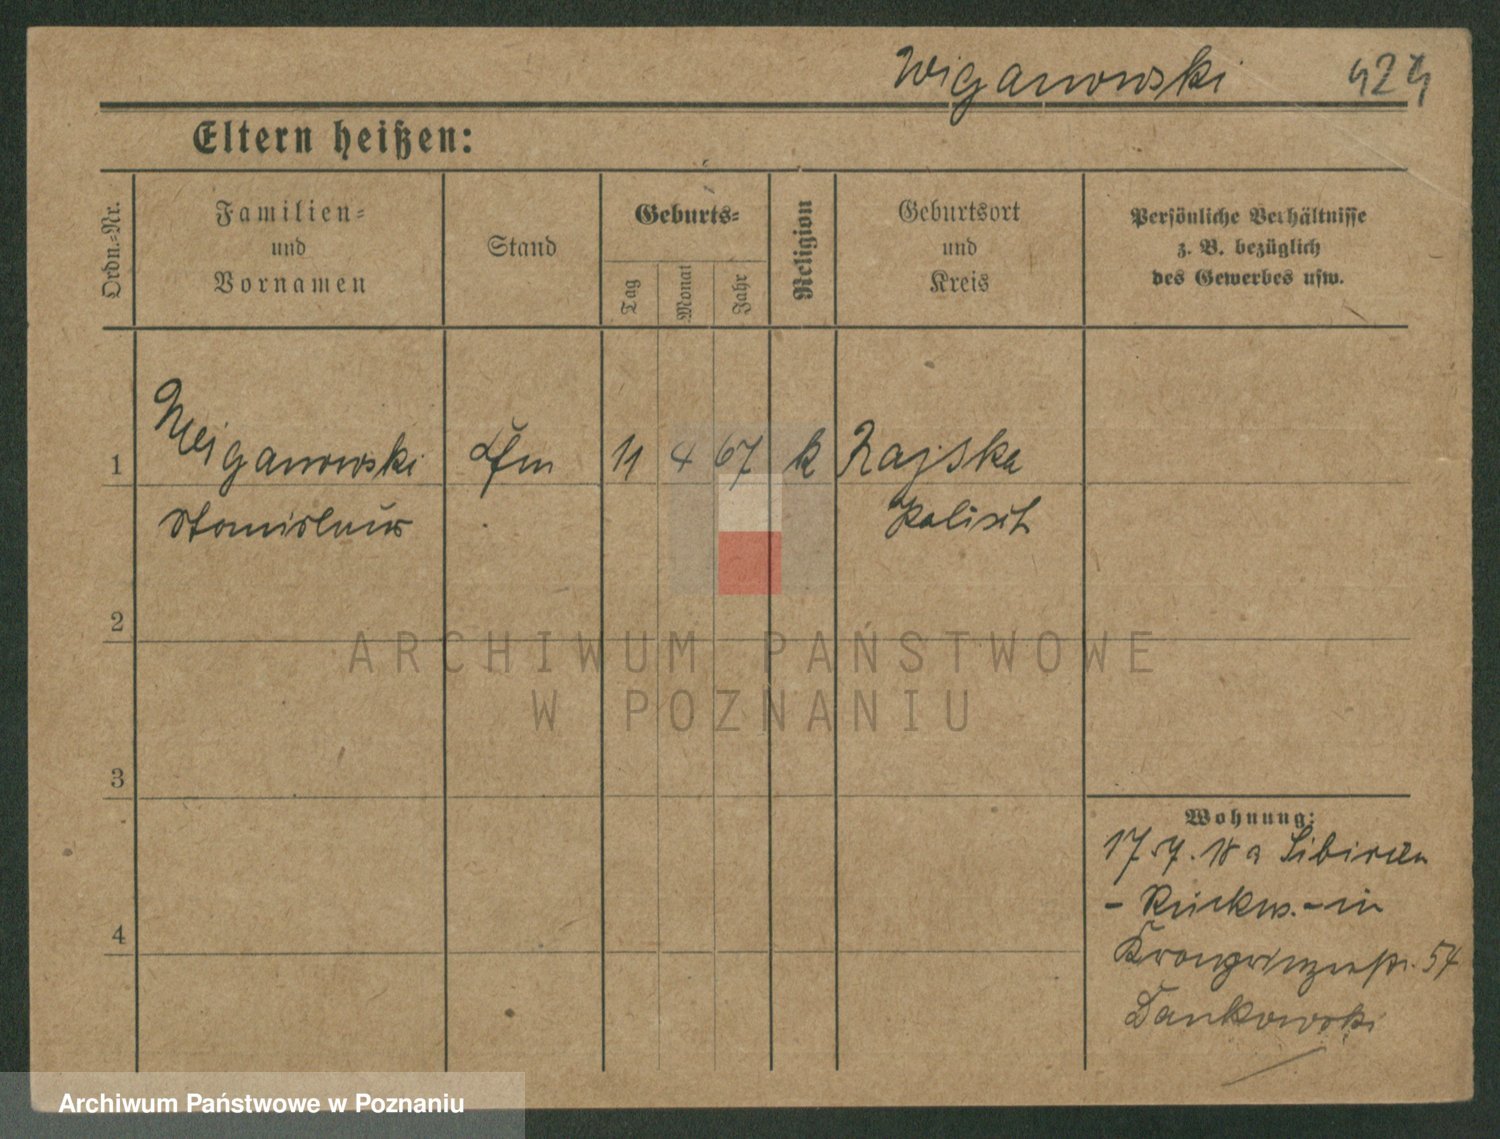 Wiganowski 424
Eltern heißen:
Ordn.=Nr.
Familien=
und
Vornamen
Stand
Geburts=
Tag
Monat
Jahr
Religion
Geburtsort
und
Kreis
Persönliche Verhältnisse
z. B. bezüglich
des Gewerbes usw.
1 Wiganowski 11 4 67 k Zajska
Stanislaus Kalisch
2
3
4
Wohnung:
17.7.18 a Sibirien
- Rückw. - in
Kronprinzenstr. 54
Dankowski
ARCHIWUM PAŃSTWOWE
W POZNANIU
Archiwum Państwowe w Poznaniu